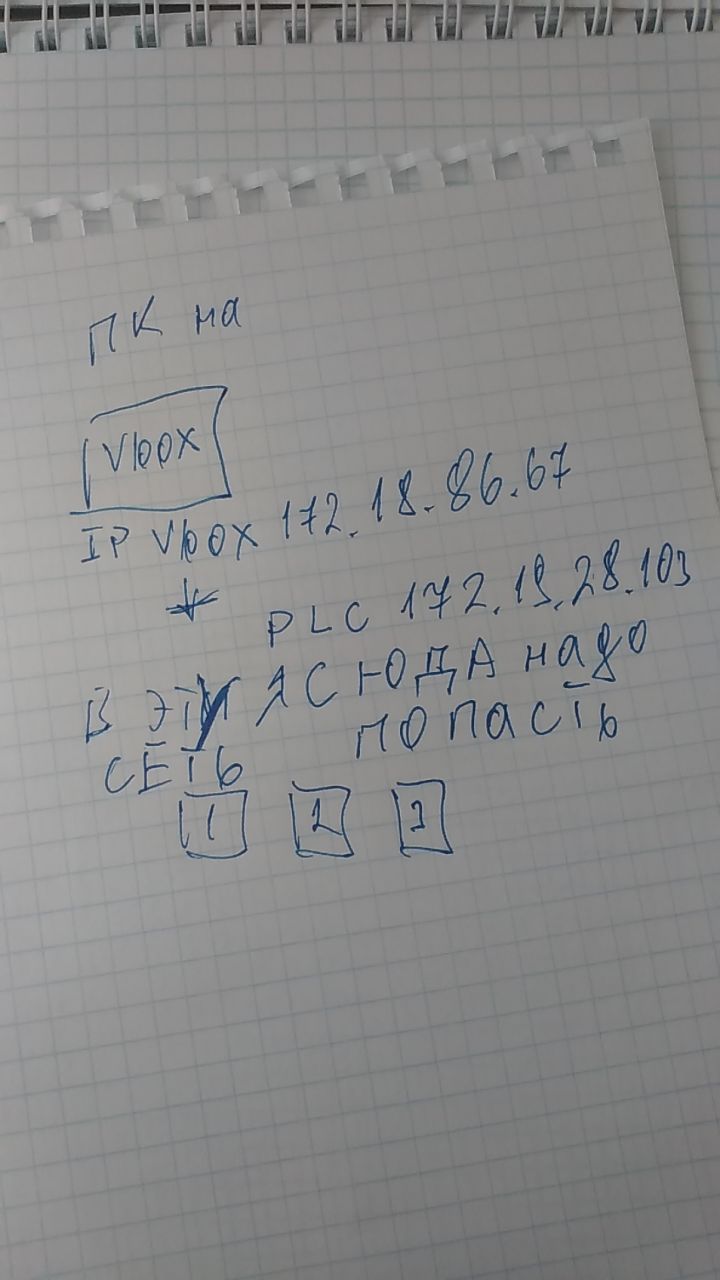 ПК на
Vbox
IP Vbox 172.18.86.67
PLC 172.19.28.103
В ЭТУ СЮДА надо
СЕТЬ попасть
1 2 3